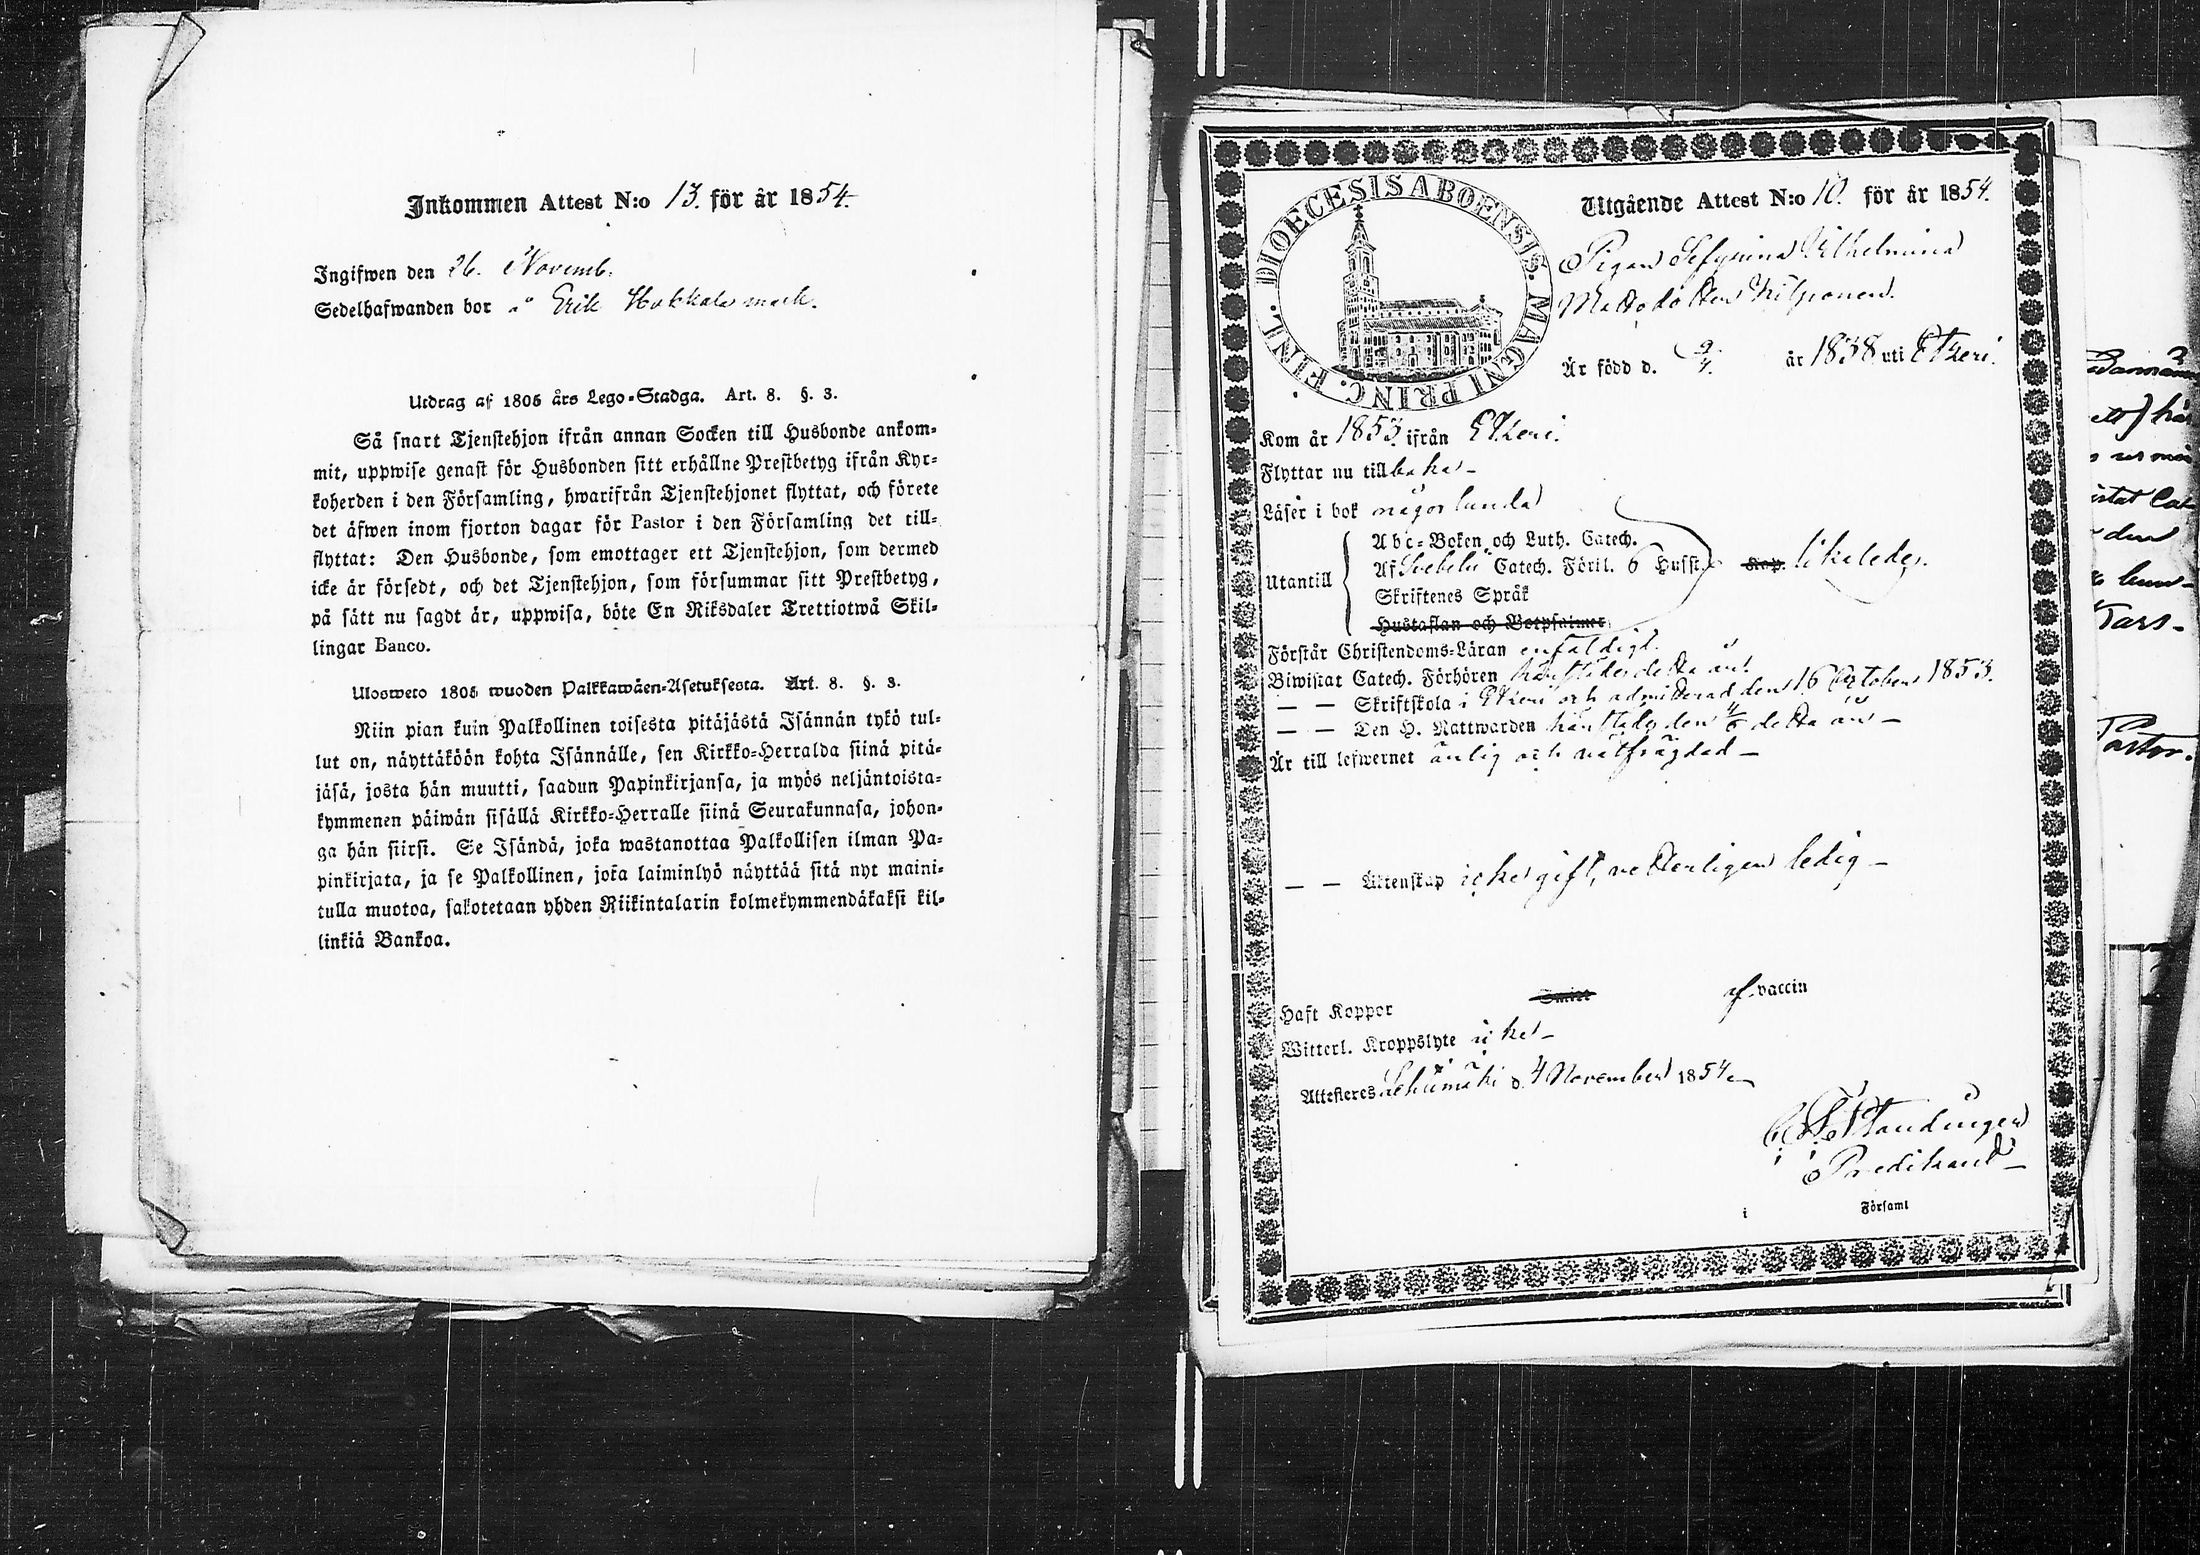 Inkommen Attest N:o 13. för år 1854.
Ingifwen den 26. Novemb.
Sedelhafwanden bor å Erik Hokkala mark.
Utdrag af 1805 års Lego-Stadga. Art. 8. §. 3.
Så snart Tjenstehjon ifrån annan Socken till Husbonde ankom-
mit, uppwise genast för Husbonden sitt erhållne Prestbetyg ifrån Kyr-
koherden i den Församling, hwarifrån Tjenstehjonet flyttat, och förete
det äfwen inom fjorton dagar för Pastor i den Församling det till-
flyttat: Den Husbonde, som emottager ett Tjenstehjon, som dermed
icke är försedt, och det Tjenstehjon, som försummar sitt Prestbetyg,
på sätt nu sagdt är, uppwisa, böte En Riksdaler Trettiotwå Skil-
lingar Banco.
Ulosweto 1805 wuoden Palkkawäen-Asetuksesta. Art. 8. §. 3.
Niin pian kuin Palkollinen toisesta pitäjästä Isännän tykö tul-
lut on, näyttäköön kohta Isännälle, sen Kirkko-Herralda siinä pitä-
jäsä, josta hän muutti, saadun Papinkirjansa, ja myös neljäntoista-
kymmenen päiwän sisällä Kirkko-Herralle siinä Seurakunnasa, johon-
ga hän siirsi. Se Isändä, joka wastanottaa Palkollisen ilman Pa-
pinkirjata, ja se Palkollinen, joka laiminlyö näyttää sitä nyt maini-
tulla muotoa, sakotetaan yhden Riikintalarin kolmekymmendäkaksi kil-
linkiä Bankoa.
FINL. DIOECESIS ABOENSIS. MAGNI PRINC.
Utgående Attest N:o 10. för år 1854.
Pigan Sefyrina Vilhelmina
Mattsdotter Kilponen.
Är född d. 9/4. år 1838 uti Etzeri.
Kom år 1853. ifrån Etzeri.
Flyttar nu tillbaka
Läser i bok någorlunda
Utantill
Abc-Boken och Luth. Catech.
Af Svebelii Catech. Förkl. 6 Hufst. Kap. likaledes.
Skriftenes Språk
Hustaflan och Botpsalmer
Förstår Christendoms-Läran enfaldigt.
Biwistat Catech. Förhören härstädes detta år.
— — Skriftskola i Etzeri och admitterad den 16 October 1853.
— — Den H. Nattwarden härstädes den 4/6 detta år —
Är till lefwernet ärlig och välfrägdad —
— — Äktenskap icke gift, vetterligen ledig —
Haft Koppor Smitt af vaccin
Witterl. Kroppslyte icke —
Attesteres Lehtimäki d. 4 November 1854
Predikant —
i Församl
Pastor.